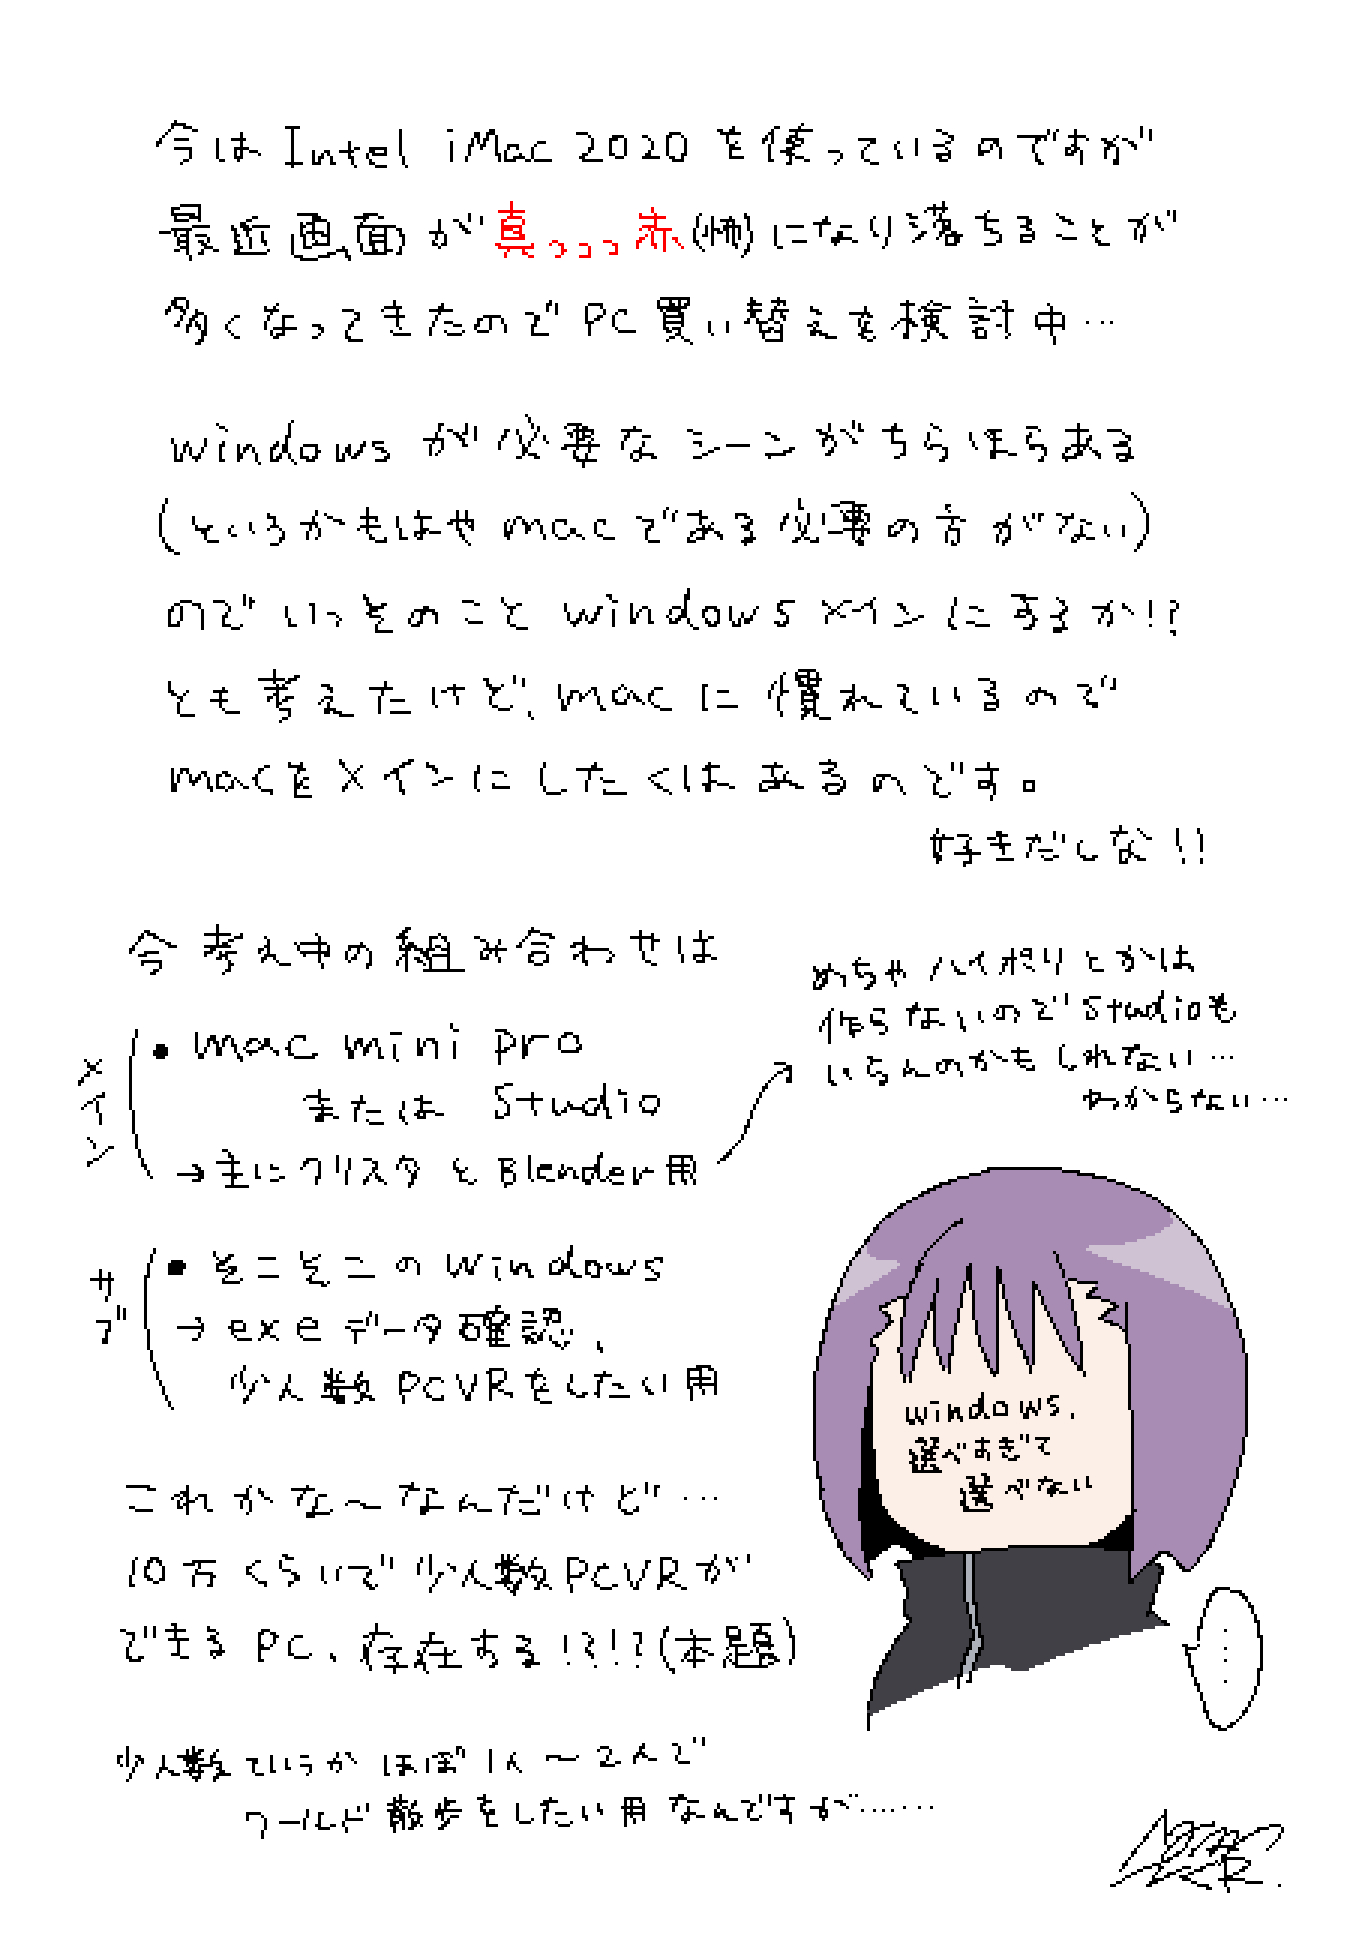 今は Intel iMac 2020 を使っているのですが
最近画面が真っっっ赤(怖)になり落ちることが
多くなってきたのでPC買い替えを検討中…
windows が必要なシーンがちらほらある
(というかもはや macである必要の方がない)
のでいっそのこと windowsメインにするか!?
とも考えたけど、macに慣れているので
macをメインにしたくはあるのです。
好きだしな!!
今考え中の組み合わせは
メイン
・mac mini pro
または Studio
→主にクリスタとBlender用
めちゃハイポリとかは
作らないのでStudioも
いらんのかもしれない…
わからない…
サブ
・そこそこのwindows
→exeデータ確認、
少人数PCVRをしたい用
windows、
選べすぎて
選べない
これかな〜なんだけど…
10万くらいで少人数PCVRが
できるPC、存在する!?!?(本題)
……
少人数ていうかほぼ1人〜2人で
ワールド散歩をしたい用なんですが………